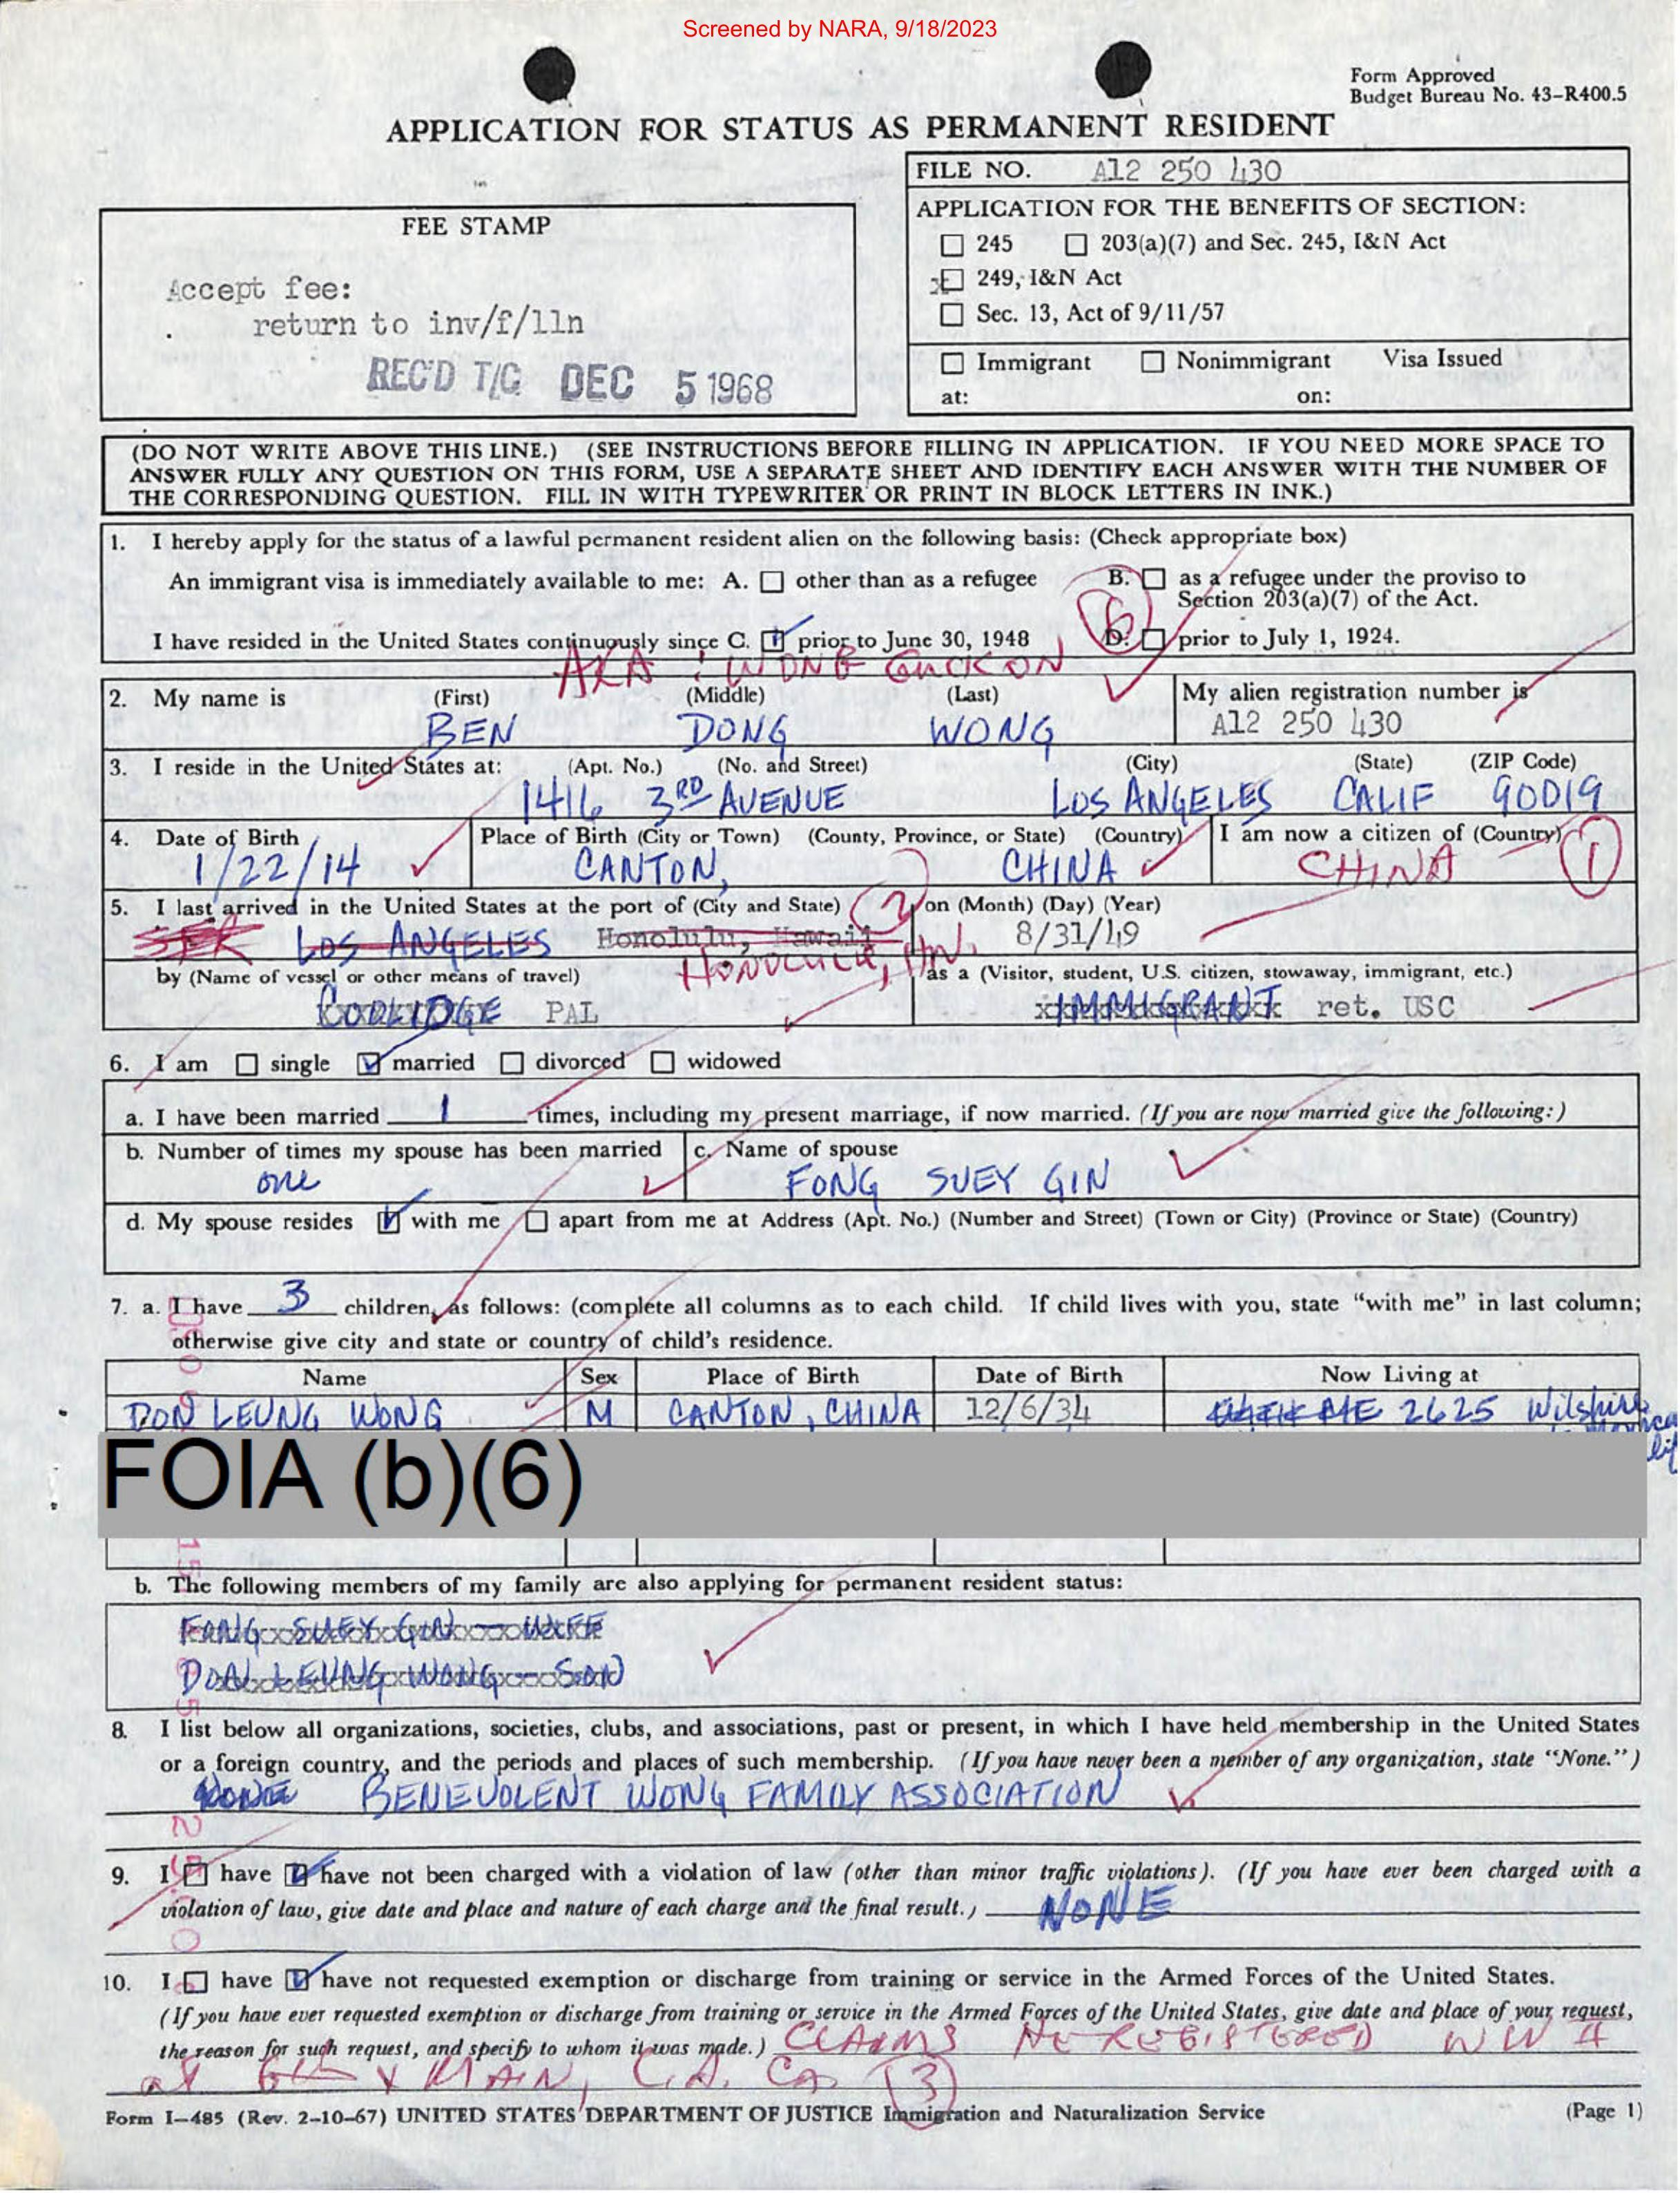 Screened by NARA, 9/18/2023
Form Approved
Budget Bureau No. 43-R400.5
APPLICATION FOR STATUS AS PERMANENT RESIDENT
FILE NO. A12 250 430
APPLICATION FOR THE BENEFITS OF SECTION:
245 203(a)(7) and Sec. 245, I&N Act
249, I&N Act
Sec. 13, Act of 9/11/57
Immigrant Nonimmigrant Visa Issued
at: on:
FEE STAMP
Accept fee:
return to inv/f/lln
REC'D T/C DEC 5 1968
(DO NOT WRITE ABOVE THIS LINE.) (SEE INSTRUCTIONS BEFORE FILLING IN APPLICATION. IF YOU NEED MORE SPACE TO
ANSWER FULLY ANY QUESTION ON THIS FORM, USE A SEPARATE SHEET AND IDENTIFY EACH ANSWER WITH THE NUMBER OF
THE CORRESPONDING QUESTION. FILL IN WITH TYPEWRITER OR PRINT IN BLOCK LETTERS IN INK.)
1. I hereby apply for the status of a lawful permanent resident alien on the following basis: (Check appropriate box)
An immigrant visa is immediately available to me: A. other than as a refugee B. as a refugee under the proviso to
Section 203(a)(7) of the Act.
6
I have resided in the United States continuously since C. prior to June 30, 1948 D. prior to July 1, 1924.
AKA: WONG GUCK ON
2. My name is (First) (Middle) (Last) My alien registration number is
BEN DONG WONG A12 250 430
3. I reside in the United States at: (Apt. No.) (No. and Street) (City) (State) (ZIP Code)
1416 3RD AVENUE LOS ANGELES CALIF 90019
4. Date of Birth Place of Birth (City or Town) (County, Province, or State) (Country) I am now a citizen of (Country)
1/22/14 CANTON, CHINA CHINA 1
5. I last arrived in the United States at the port of (City and State) 2 on (Month) (Day) (Year)
LOS ANGELES Honolulu, Hawaii 8/31/49
HONOLULU,
by (Name of vessel or other means of travel) as a (Visitor, student, U.S. citizen, stowaway, immigrant, etc.)
COOLIDGE PAL IMMIGRANT ret. USC
6. I am single married divorced widowed
a. I have been married 1 times, including my present marriage, if now married. (If you are now married give the following:)
b. Number of times my spouse has been married c. Name of spouse
one FONG SUEY GIN
d. My spouse resides with me apart from me at Address (Apt. No.) (Number and Street) (Town or City) (Province or State) (Country)
7. a. I have 3 children, as follows: (complete all columns as to each child. If child lives with you, state "with me" in last column;
otherwise give city and state or country of child's residence.
Name Sex Place of Birth Date of Birth Now Living at
DON LEUNG WONG M CANTON, CHINA 12/6/34 2625 Wilshire
FOIA (b)(6)
b. The following members of my family are also applying for permanent resident status:
FONG SUEY GIN — WIFE
DON LEUNG WONG — SON
8. I list below all organizations, societies, clubs, and associations, past or present, in which I have held membership in the United States
or a foreign country, and the periods and places of such membership. (If you have never been a member of any organization, state "None.")
NONE BENEVOLENT WONG FAMILY ASSOCIATION
9. I have have not been charged with a violation of law (other than minor traffic violations). (If you have ever been charged with a
violation of law, give date and place and nature of each charge and the final result.) NONE
10. I have have not requested exemption or discharge from training or service in the Armed Forces of the United States.
(If you have ever requested exemption or discharge from training or service in the Armed Forces of the United States, give date and place of your request,
the reason for such request, and specify to whom it was made.) CLAIMS HE REGISTERED WW II
at 6th & MAIN, L.A. CA 3
Form I-485 (Rev. 2-10-67) UNITED STATES DEPARTMENT OF JUSTICE Immigration and Naturalization Service (Page 1)